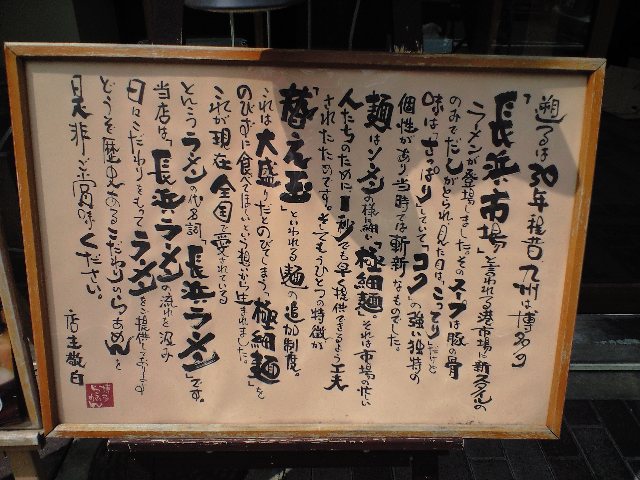 遡るは30年程昔九州は博多の
「長浜市場」と言われてる港市場に新スタイルの
ラーメンが登場しました。そのスープは豚の骨
のみでだしがとられ、見た目は「こってり」だけど
味は「さっぱり」していて「コク」の強い独特の
個性があり当時では斬新なものでした。
麺はソーメンの様な細い「極細麺」それは市場の忙しい
人たちのために1秒でも早く提供できるよう工夫
されたためです。そしてもうひとつの特徴が
「替え玉」といわれる麺の追加制度。
これは大盛だとのびてしまう極細麺を
のびずに食べてほしいという想いから生まれました。
これが現在全国で愛されている
とんこつラーメンの代名詞「長浜ラーメン」です。
当店は、長浜ラーメンの流れを汲み
日々こだわりをもってラーメンをご提供しております
どうぞ歴史あるこだわりのらぁめんを
是非ご賞味ください。
店主敬白